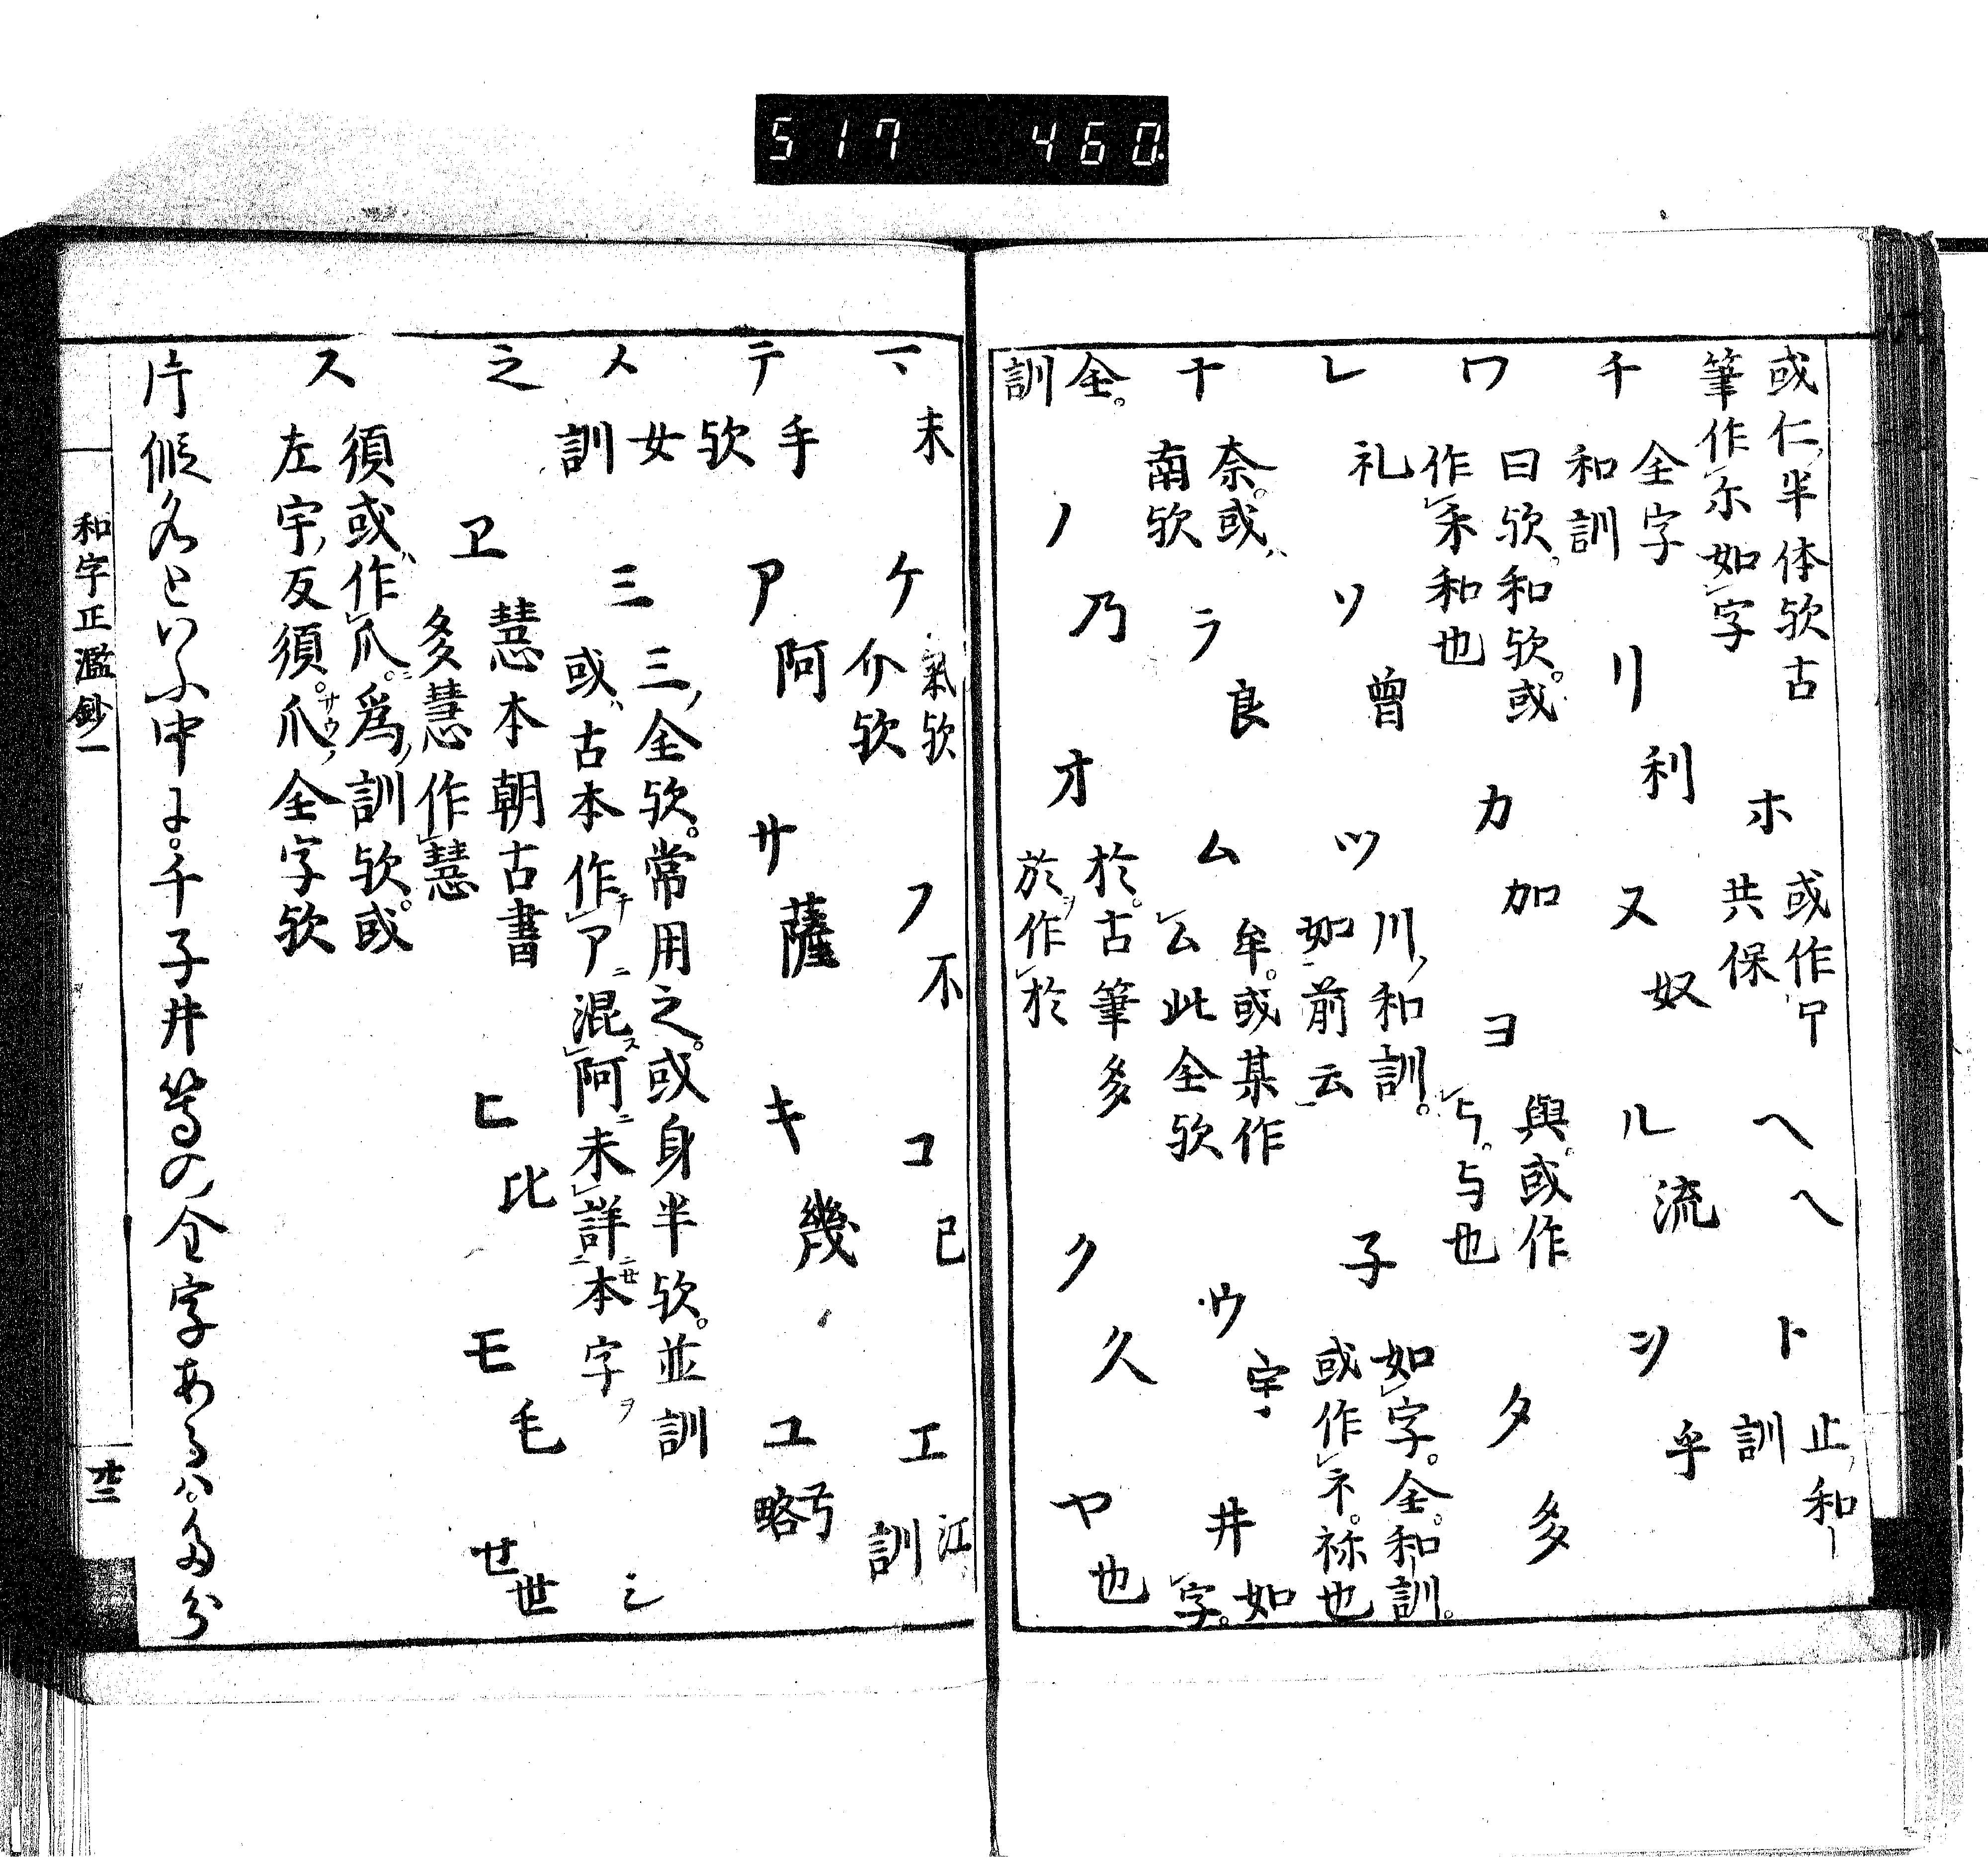 517 460
或仁半体欤古
筆作尓如字
ホ
或作卩
共保
ヘ ヘ
ト
止和
訓
チ
全字
和訓
リ 利
ヌ 奴
ル 流
ヲ 乎
ワ
曰欤和欤或
作禾和也
カ 加
ヨ
與或作
与也
タ 多
レ 礼
ソ 曽
ツ
川和訓
如前云
子
如字全和訓
或作ネ祢也
ナ
奈或
南欤
ラ 良
ム
牟或某作
厶此全欤
ウ 宇
井 如
字
全
訓
ノ 乃
オ
於古筆多
於作於
ク 久
ヤ 也
マ 末
ケ
氣欤
介欤
フ 不
コ 己
エ 江
訓
テ 手
欤
ア 阿
サ 薩
キ 幾
ユ 弓
略
メ 女
訓
三
三全欤常用之或身半欤並訓
或古本作ア混阿未詳本字
シ
之
ヱ
慧本朝古書
多慧作慧
ヒ 比
モ 毛
せ 世
ス
須或作爪為訓欤或
左宇反須爪サウ全字欤
片假名といふ中に千子井等の全字あるハ多分
和字正濫鈔一
廿二